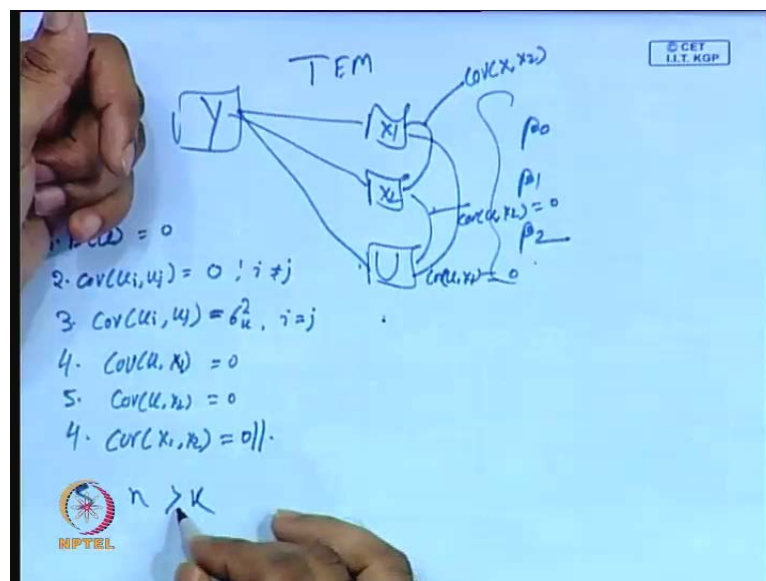 TEM
© CET
I.I.T. KGP
Y
X1
X2
U
Cov(X1, X2)
Cov(U, X2) = 0
Cov(U, X1) = 0
β0
β1
β2
= 0
2. Cov(Ui, Uj) = 0 ; i ≠ j
3. Cov(Ui, Uj) = σ²u, i = j
4. Cov(U, X1) = 0
5. Cov(U, X2) = 0
4. Cov(X1, X2) = 0||.
n > K
NPTEL